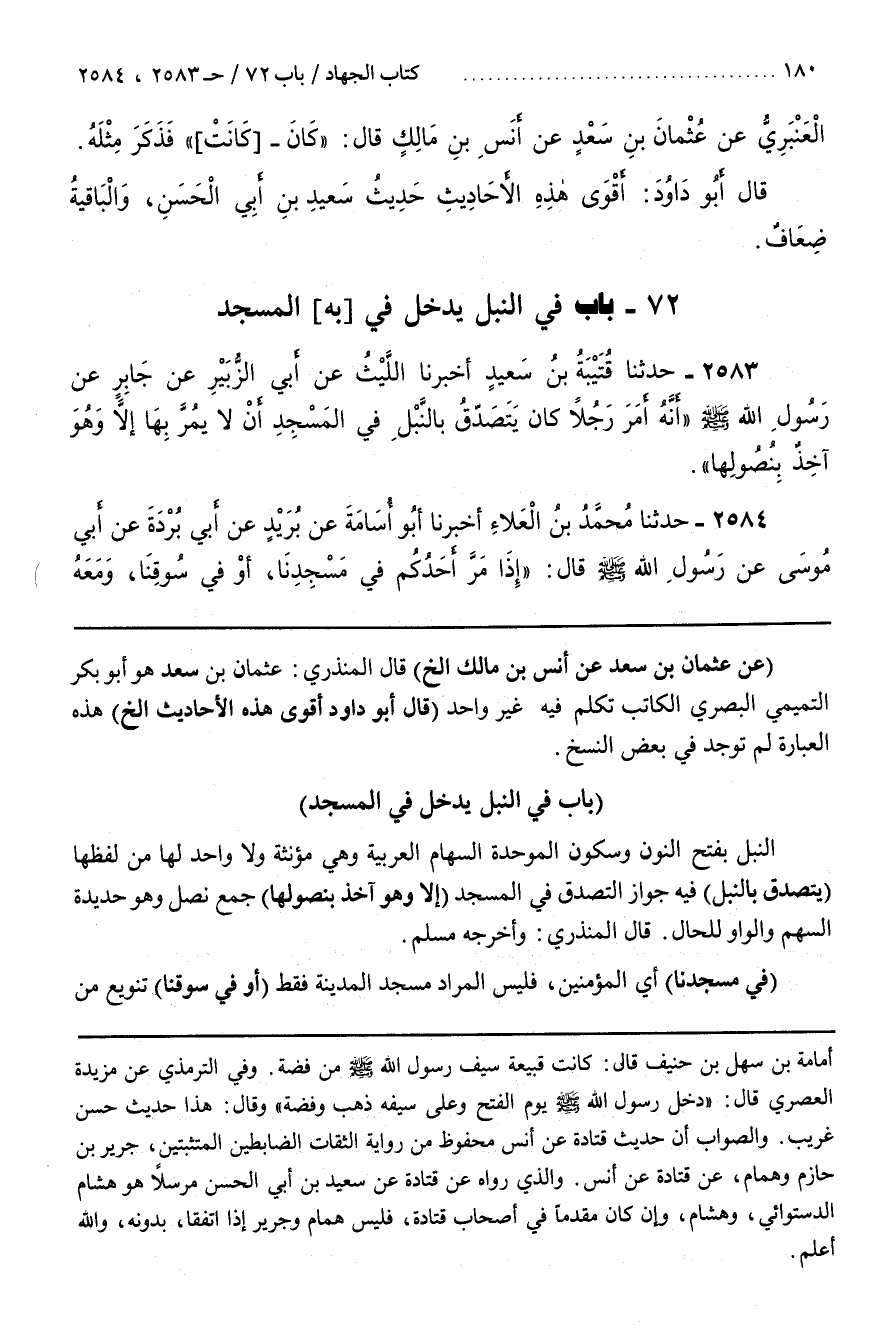 ١٨٠ ...................................... كتاب الجهاد / باب ٧٢ / حـ ٢٥٨٣ ، ٢٥٨٤
الْعَنْبَرِيُّ عن عُثْمانَ بنِ سَعْدٍ عن أَنَسِ بنِ مَالِكٍ قال: «كَانَ - [كَانَتْ]» فَذَكَرَ مِثْلَهُ.
قال أَبُو دَاوُدَ: أَقْوَى هٰذِهِ الأَحَادِيثِ حَدِيثُ سَعيدِ بنِ أَبي الْحَسَنِ، وَالْبَاقيةُ
ضِعَافٌ.
٧٢ - باب في النبل يدخل في [به] المسجد
٢٥٨٣ - حدثنا قُتَيْبَةُ بنُ سَعيدٍ أخبرنا اللَّيْثُ عن أَبي الزُّبَيْرِ عن جَابِرٍ عن
رَسُولِ الله ﷺ «أَنَّهُ أَمَرَ رَجُلاً كان يَتَصَدّقُ بالنَّبْلِ في المَسْجِدِ أَنْ لا يمُرَّ بِهَا إلاَّ وَهُوَ
آخِذٌ بِنُصُولِها».
٢٥٨٤ - حدثنا مُحمَّدُ بنُ الْعَلاءِ أخبرنا أَبُو أُسَامَةَ عن بُرَيْدٍ عن أَبي بُرْدَةَ عن أَبي
مُوسَى عن رَسُولِ الله ﷺ قال: «إِذَا مَرَّ أَحَدُكُم في مَسْجِدِنَا، أوْ في سُوقِنَا، وَمَعَهُ
(عن عثمان بن سعد عن أنس بن مالك الخ) قال المنذري: عثمان بن سعد هو أبو بكر
التميمي البصري الكاتب تكلم فيه غير واحد (قال أبو داود أقوى هذه الأحاديث الخ) هذه
العبارة لم توجد في بعض النسخ.
(باب في النبل يدخل في المسجد)
النبل بفتح النون وسكون الموحدة السهام العربية وهي مؤنثة ولا واحد لها من لفظها
(يتصدق بالنبل) فيه جواز التصدق في المسجد (إلا وهو آخذ بنصولها) جمع نصل وهو حديدة
السهم والواو للحال. قال المنذري: وأخرجه مسلم.
(في مسجدنا) أي المؤمنين، فليس المراد مسجد المدينة فقط (أو في سوقنا) تنويع من
أمامة بن سهل بن حنيف قال: كانت قبيعة سيف رسول الله ﷺ من فضة. وفي الترمذي عن مزيدة
العصري قال: «دخل رسول الله ﷺ يوم الفتح وعلى سيفه ذهب وفضة» وقال: هذا حديث حسن
غريب. والصواب أن حديث قتادة عن أنس محفوظ من رواية الثقات الضابطين المتثبتين، جرير بن
حازم وهمام، عن قتادة عن أنس. والذي رواه عن قتادة عن سعيد بن أبي الحسن مرسلاً هو هشام
الدستوائي، وهشام، وإن كان مقدماً في أصحاب قتادة، فليس همام وجرير إذا اتفقا، بدونه، والله
أعلم.